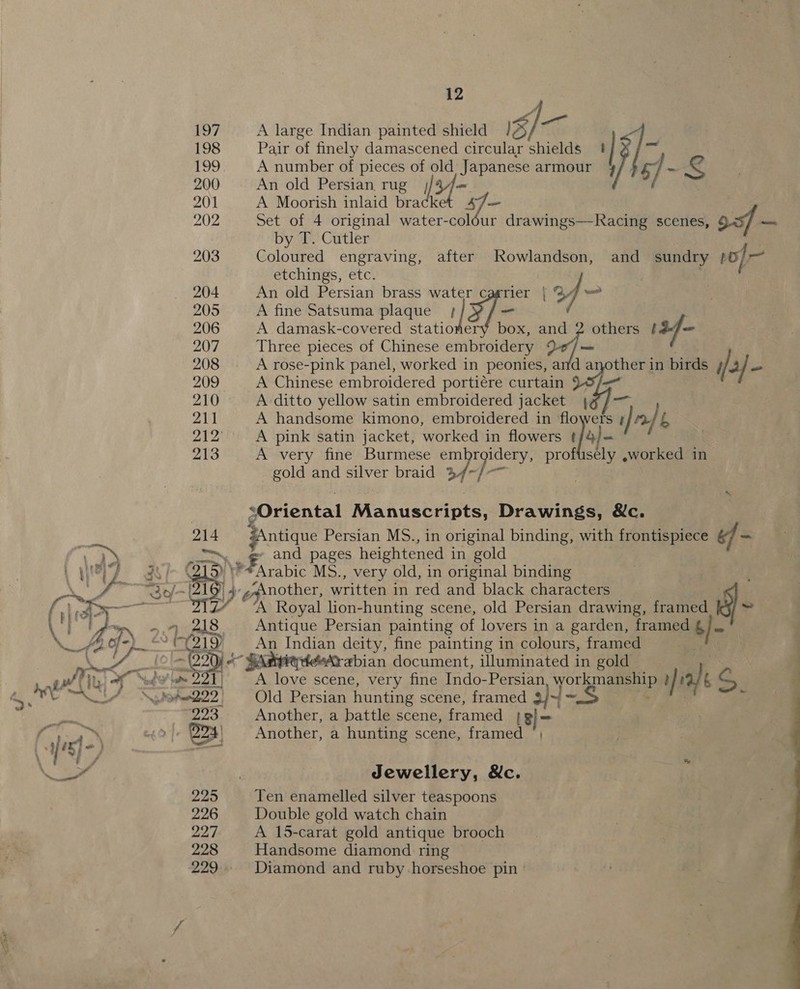 12
197 A large Indian painted shield 18/-
198 Pair of finely damascened circular shields
199 A number of pieces of old Japanese armour
200 An old Persian rug
201 A Moorish inlaid bracket
202 Set of 4 original water-colour drawings—Racing scenes,
by T. Cutler
203 Coloured engraving, after Rowlandson, and sundry
etchings, etc.
204 An old Persian brass water carrier
205 A fine Satsuma plaque
206 A damask-covered stationery box, and 2 others
207 Three pieces of Chinese embroidery
208 A rose-pink panel, worked in peonies, and another in birds
209 A Chinese embroidered portiére curtain
210 A ditto yellow satin embroidered jacket
211 A handsome kimono, embroidered in flowers
212 A pink satin jacket, worked in flowers
213 A very fine Burmese embroidery, profusely worked in
gold and silver braid
Oriental Manuscripts, Drawings, &c.
214 Antique Persian MS., in original binding, with frontispiece
and pages heightened in gold
215 Arabic MS., very old, in original binding
216 Another, written in red and black characters
217 A Royal lion-hunting scene, old Persian drawing, framed
218 Antique Persian painting of lovers in a garden, framed
219 An Indian deity, fine painting in colours, framed
220 Arabian document, illuminated in gold
221 A love scene, very fine Indo-Persian workmanship
222 Old Persian hunting scene, framed
223 Another, a battle scene, framed
224 Another, a hunting scene, framed
Jewellery, &c.
225 Ten enamelled silver teaspoons
226 Double gold watch chain
227 A 15-carat gold antique brooch
228 Handsome diamond ring
229 Diamond and ruby horseshoe pin